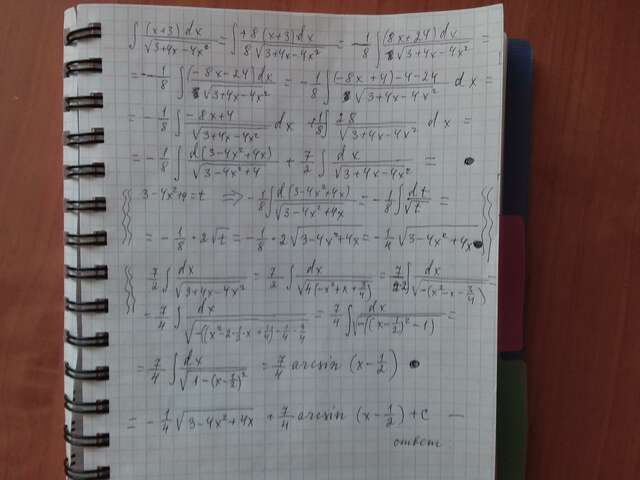 ∫ (x+3)dx / √(3+4x−4x²) = ∫ +8(x+3)dx / 8√(3+4x−4x²) = −1/8 ∫ (8x+24)dx / √(3+4x−4x²) =
= −1/8 ∫ (−8x−24)dx / √(3+4x−4x²) = −1/8 ∫ (−8x+4)−4−24 / √(3+4x−4x²) dx =
= −1/8 ∫ −8x+4 / √(3+4x−4x²) dx + 1/8 ∫ 28 / √(3+4x−4x²) dx =
= −1/8 ∫ d(3−4x²+4x) / √(3−4x²+4) + 7/2 ∫ dx / √(3+4x−4x²) =
3−4x²+4=t ⇒ −1/8 ∫ d(3−4x²+4x) / √(3−4x²+4x) = −1/8 ∫ dt / √t =
= −1/8 · 2√t = −1/8 · 2√(3−4x²+4x) = −1/4 √(3−4x²+4x)
7/2 ∫ dx / √(3+4x−4x²) = 7/2 ∫ dx / √(4(−x²+x+3/4)) = 7/2·2 ∫ dx / √(−(x²−x−3/4)) =
= 7/4 ∫ dx / √(−((x²−2·1/2·x+1/4)−1/4−3/4)) = 7/4 ∫ dx / √(−((x−1/2)²−1)) =
= 7/4 ∫ dx / √(1−(x−1/2)²) = 7/4 arcsin (x−1/2)
= −1/4 √(3−4x²+4x) + 7/4 arcsin (x−1/2) + c —
ответ